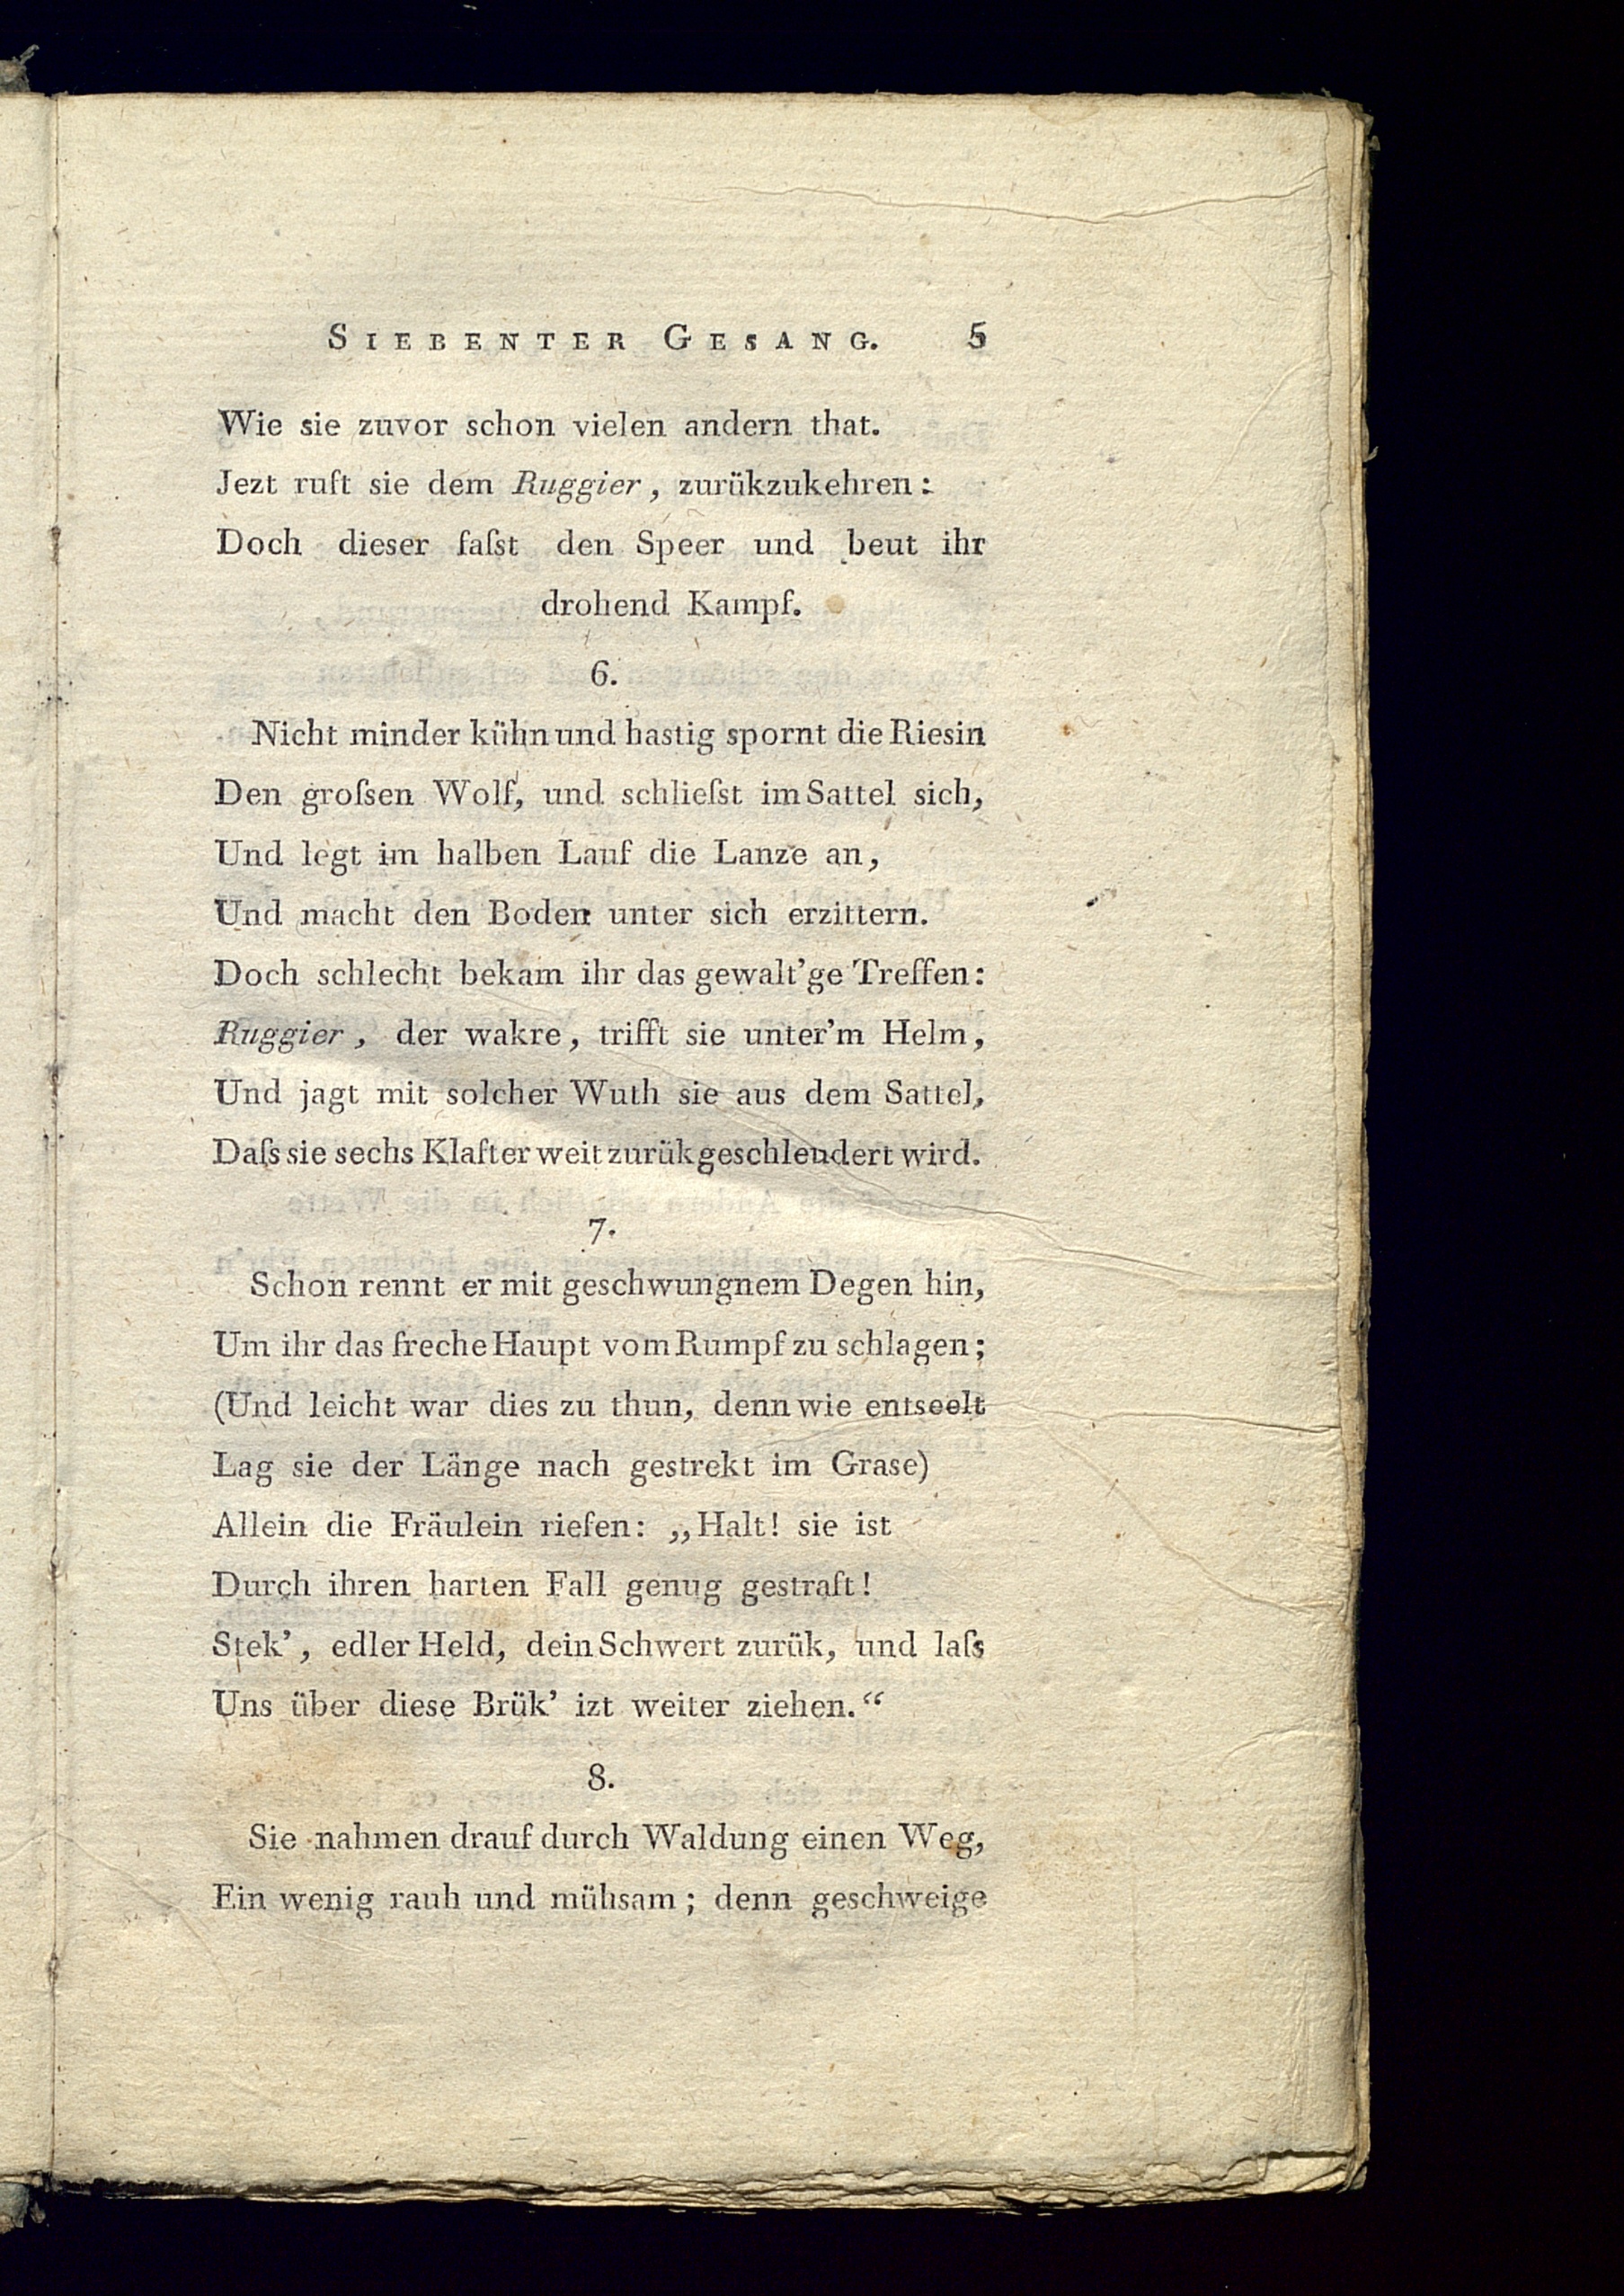 SIEBENTER GESANG. 5
Wie sie zuvor schon vielen andern that.
Jezt ruft sie dem Ruggier, zurükzukehren:
Doch dieser faſst den Speer und beut ihr
drohend Kampf.
6.
Nicht minder kühn und hastig spornt die Riesin
Den groſsen Wolf, und schlieſst im Sattel sich,
Und legt im halben Lauf die Lanze an,
Und macht den Boden unter sich erzittern.
Doch schlecht bekam ihr das gewalt'ge Treffen:
Ruggier, der wakre, trifft sie unter'm Helm,
Und jagt mit solcher Wuth sie aus dem Sattel,
Daſs sie sechs Klafter weit zurükgeschleudert wird.
7.
Schon rennt er mit geschwungnem Degen hin,
Um ihr das freche Haupt vom Rumpf zu schlagen;
(Und leicht war dies zu thun, denn wie entseelt
Lag sie der Länge nach gestrekt im Grase)
Allein die Fräulein riefen: „Halt! sie ist
Durch ihren harten Fall genug gestraft!
Stek', edler Held, dein Schwert zurük, und laſs
Uns über diese Brük' izt weiter ziehen.“
8.
Sie nahmen drauf durch Waldung einen Weg,
Ein wenig rauh und mühsam; denn geschweige